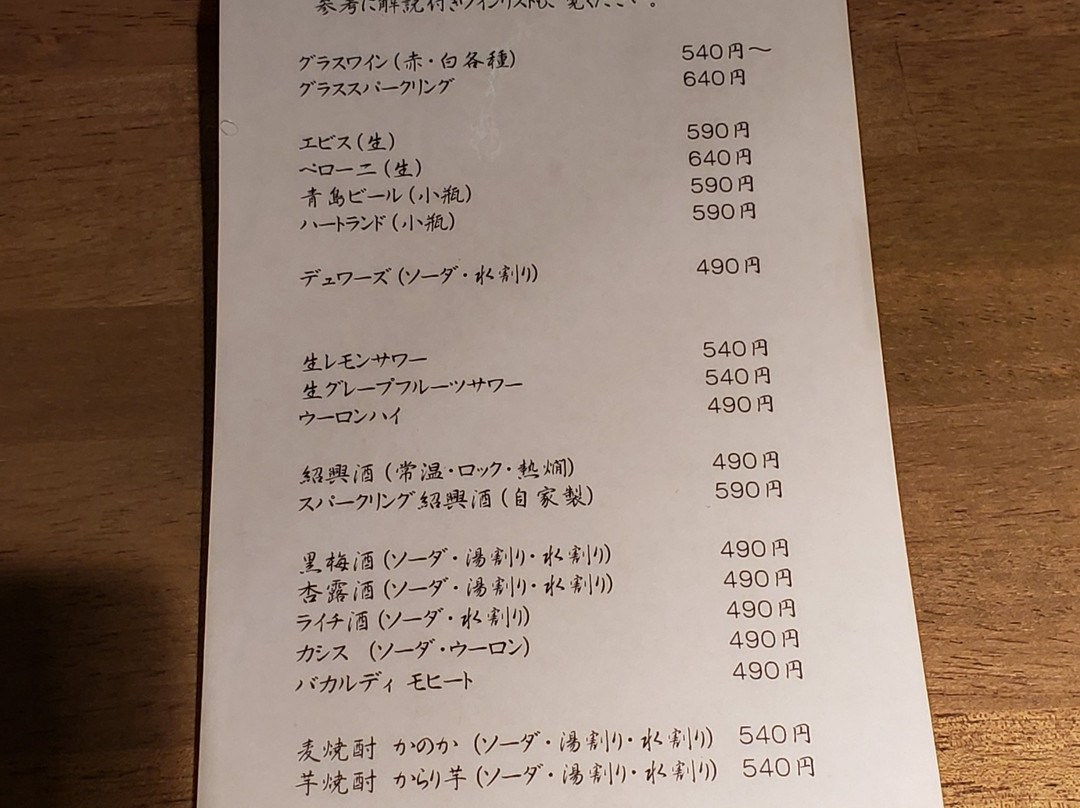 参考に解説付きワインリストも、ご覧ください。
グラスワイン(赤・白各種) 540円~
グラススパークリング 640円
エビス(生) 590円
ペローニ(生) 640円
青島ビール(小瓶) 590円
ハートランド(小瓶) 590円
デュワーズ(ソーダ・水割り) 490円
生レモンサワー 540円
生グレープフルーツサワー 540円
ウーロンハイ 490円
紹興酒(常温・ロック・熱燗) 490円
スパークリング紹興酒(自家製) 590円
黒梅酒(ソーダ・湯割り・水割り) 490円
杏露酒(ソーダ・湯割り・水割り) 490円
ライチ酒(ソーダ・水割り) 490円
カシス (ソーダ・ウーロン) 490円
バカルディ モヒート 490円
麦焼酎 かのか (ソーダ・湯割り・水割り) 540円
芋焼酎 からり芋(ソーダ・湯割り・水割り) 540円